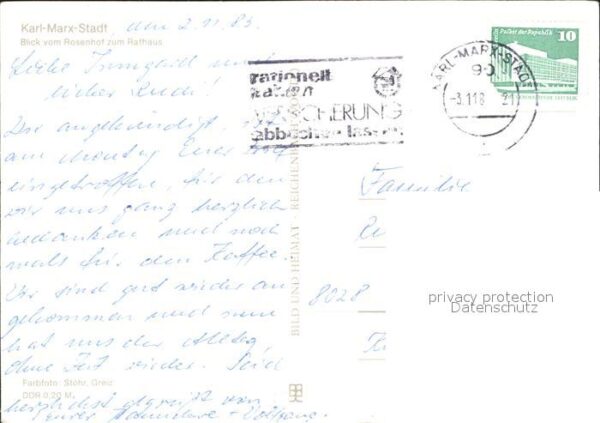 Karl-Marx-Stadt
Blick vom Rosenhof zum Rathaus
den 2.11.83.
Liebe Irmgard und
lieber Rudi!
Wie angekündigt,
am Montag Euer
eingetroffen, für den
wir uns ganz herzlich
bedanken und noch
mals für den Kaffee.
Wir sind gut wieder an
gekommen und nun
hat uns der Alltag,
ohne Zeit wieder. Seid
herzlichst gegrüßt von
Eurer Hannelore + Wolfgang.
Farbfoto: Stöhr, Greiz
DDR 0,20 M
BILD UND HEIMAT · REICHENBACH
rationell
VERSICHERUNG
abbuchen lassen
KARL-MARX-STADT
90
-3.11.8 -21
Palast der Republik
10
Familie
8028
privacy protection
Datenschutz